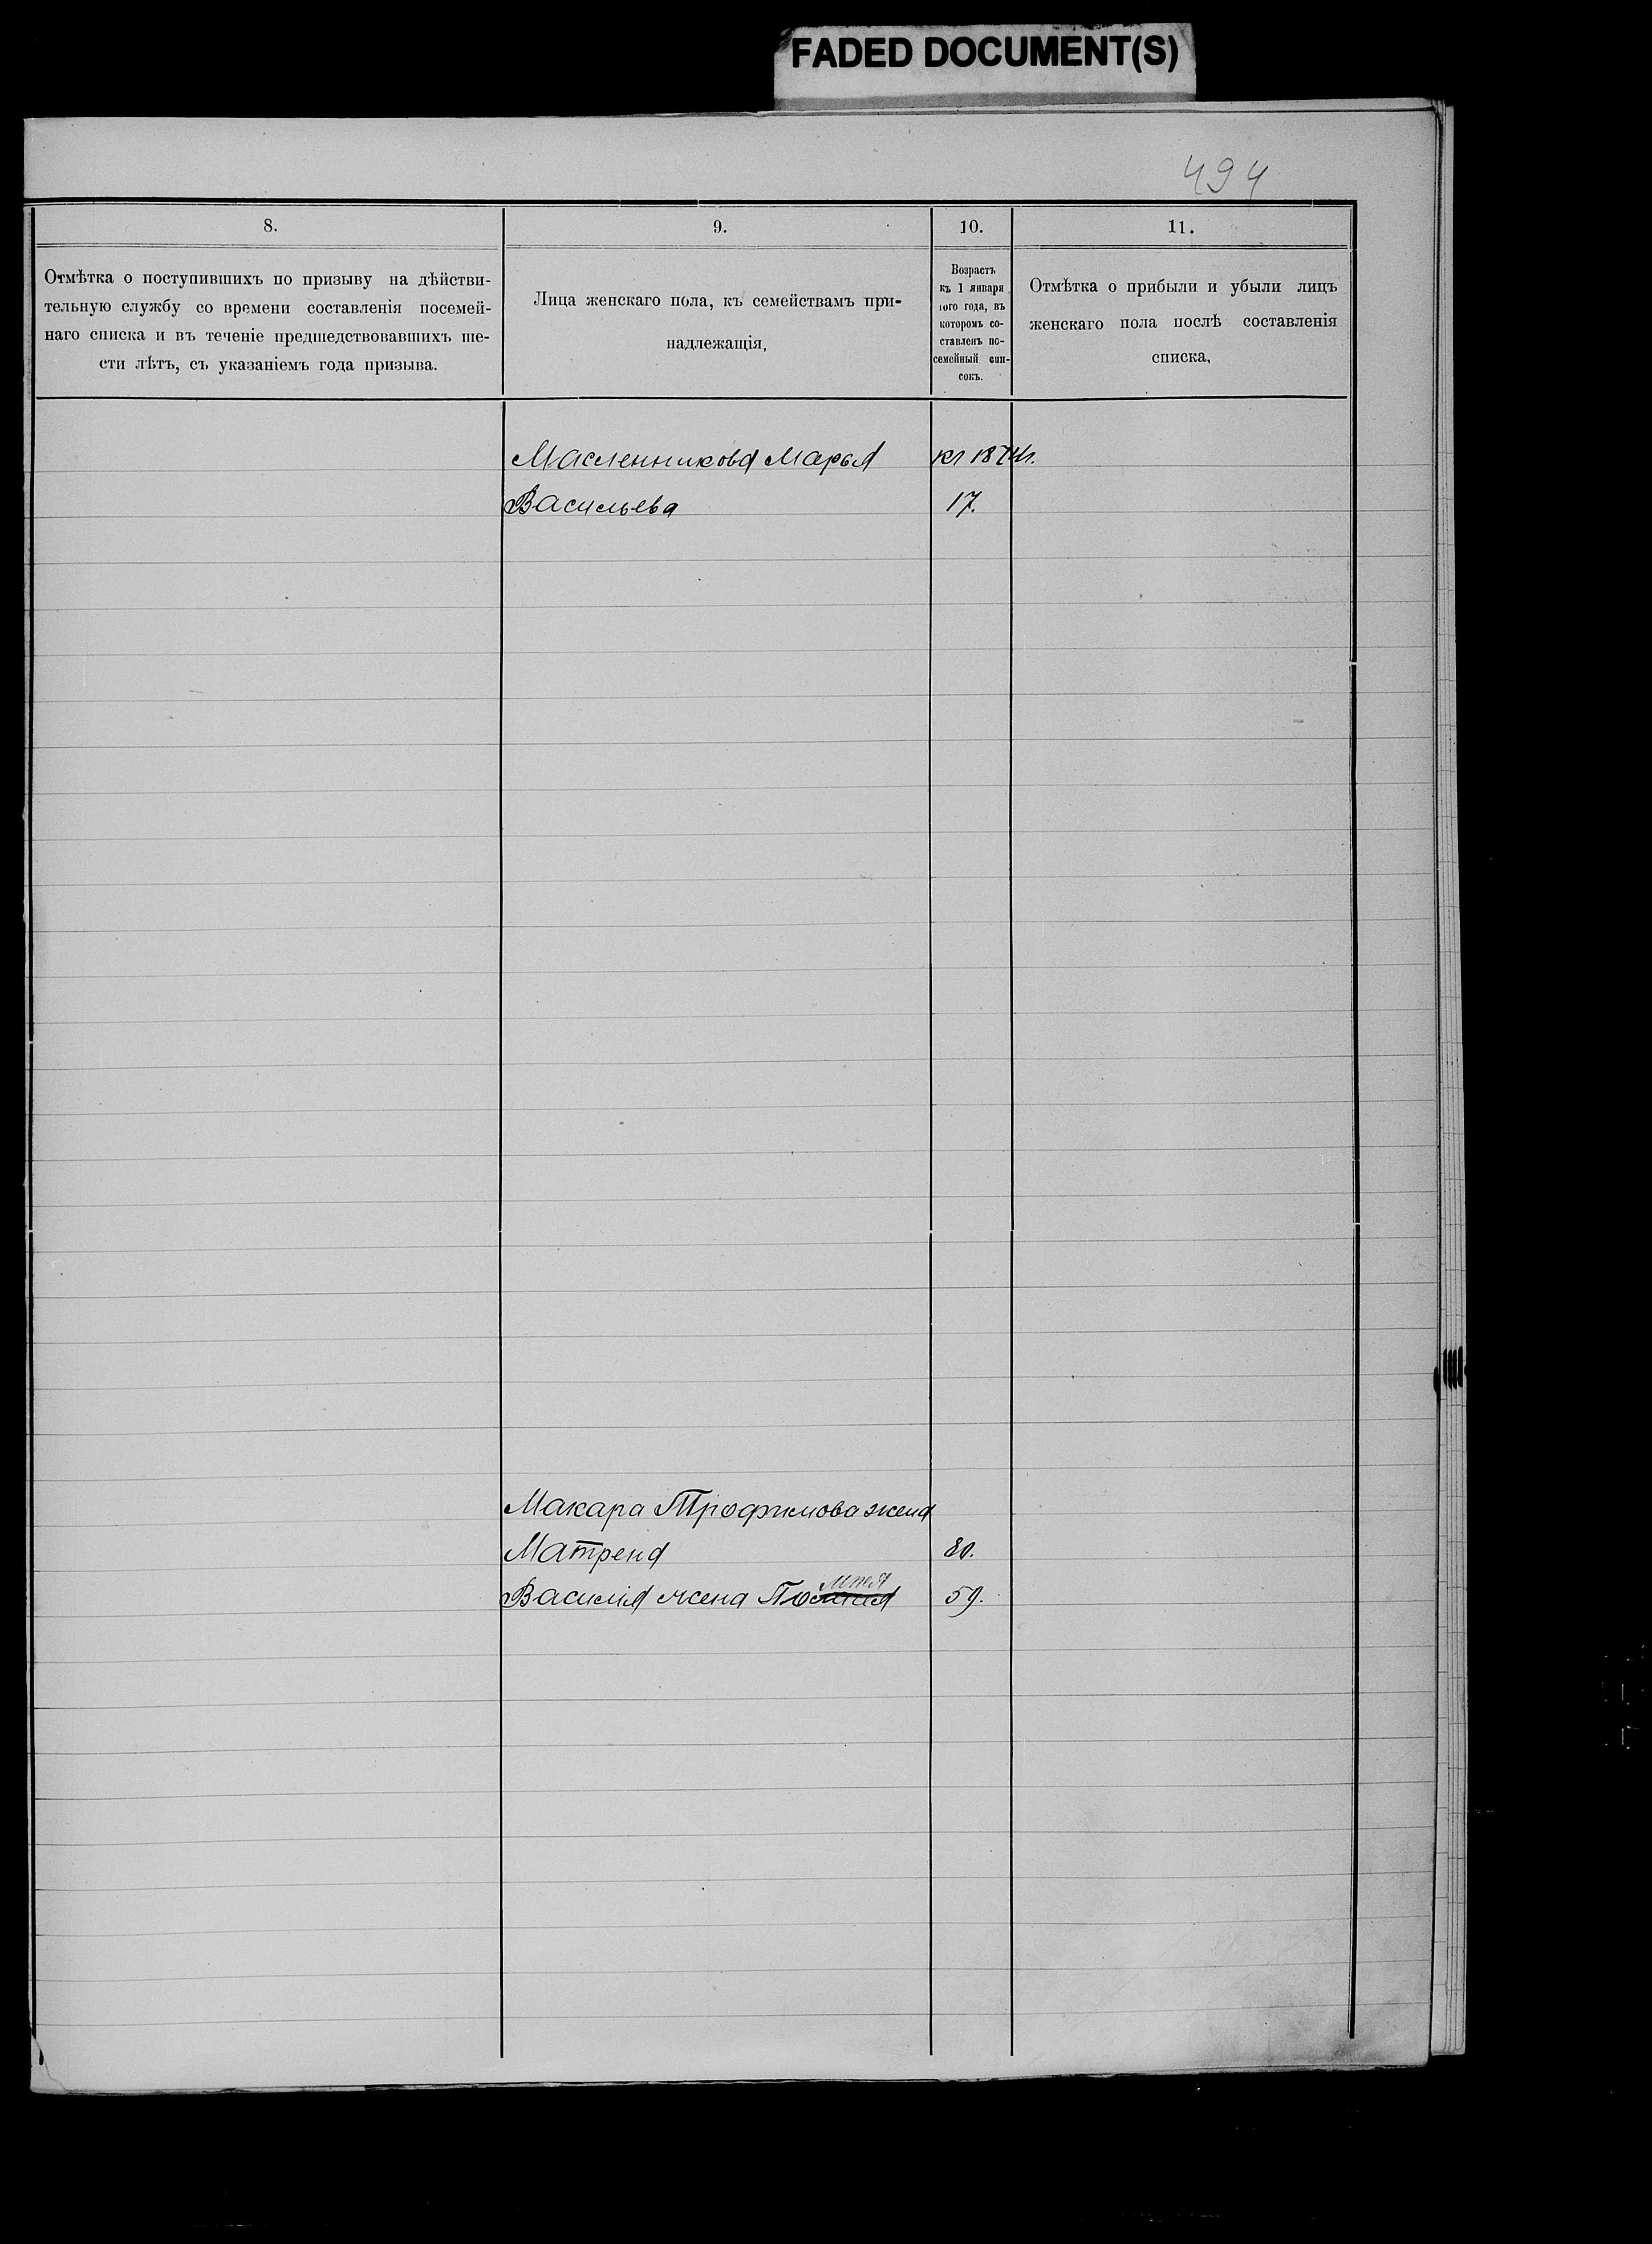 FADED DOCUMENT(S)
494
8.
Отмѣтка о поступившихъ по призыву на дѣйстви-
тельную службу со времени составленія посемей-
наго списка и въ теченіе предшедствовавшихъ ше-
сти лѣтъ, съ указаніемъ года призыва.
9.
Лица женскаго пола, къ семействамъ при-
надлежащія,
10.
Возрастъ
къ 1 января
того года, въ
которомъ со-
ставленъ по-
семейный спи-
сокъ.
11.
Отмѣтка о прибыли и убыли лицъ
женскаго пола послѣ составленія
списка,
Масленникова Марья
Васильева 17.
Макара Трофимова жена
Матрена 80.
Василія жена 59.